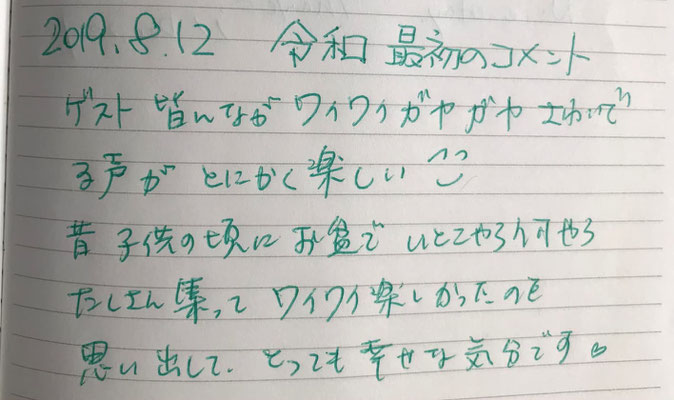 2019.8.12 令和 最初のコメント
ゲスト 皆んなが ワイワイガヤガヤ さわいで
る声が とにかく楽しい ^^
昔 子供の頃に お盆で いとこやら何やら
たくさん集って ワイワイ楽しかったのを
思い出して、とっても幸せな気分です♡